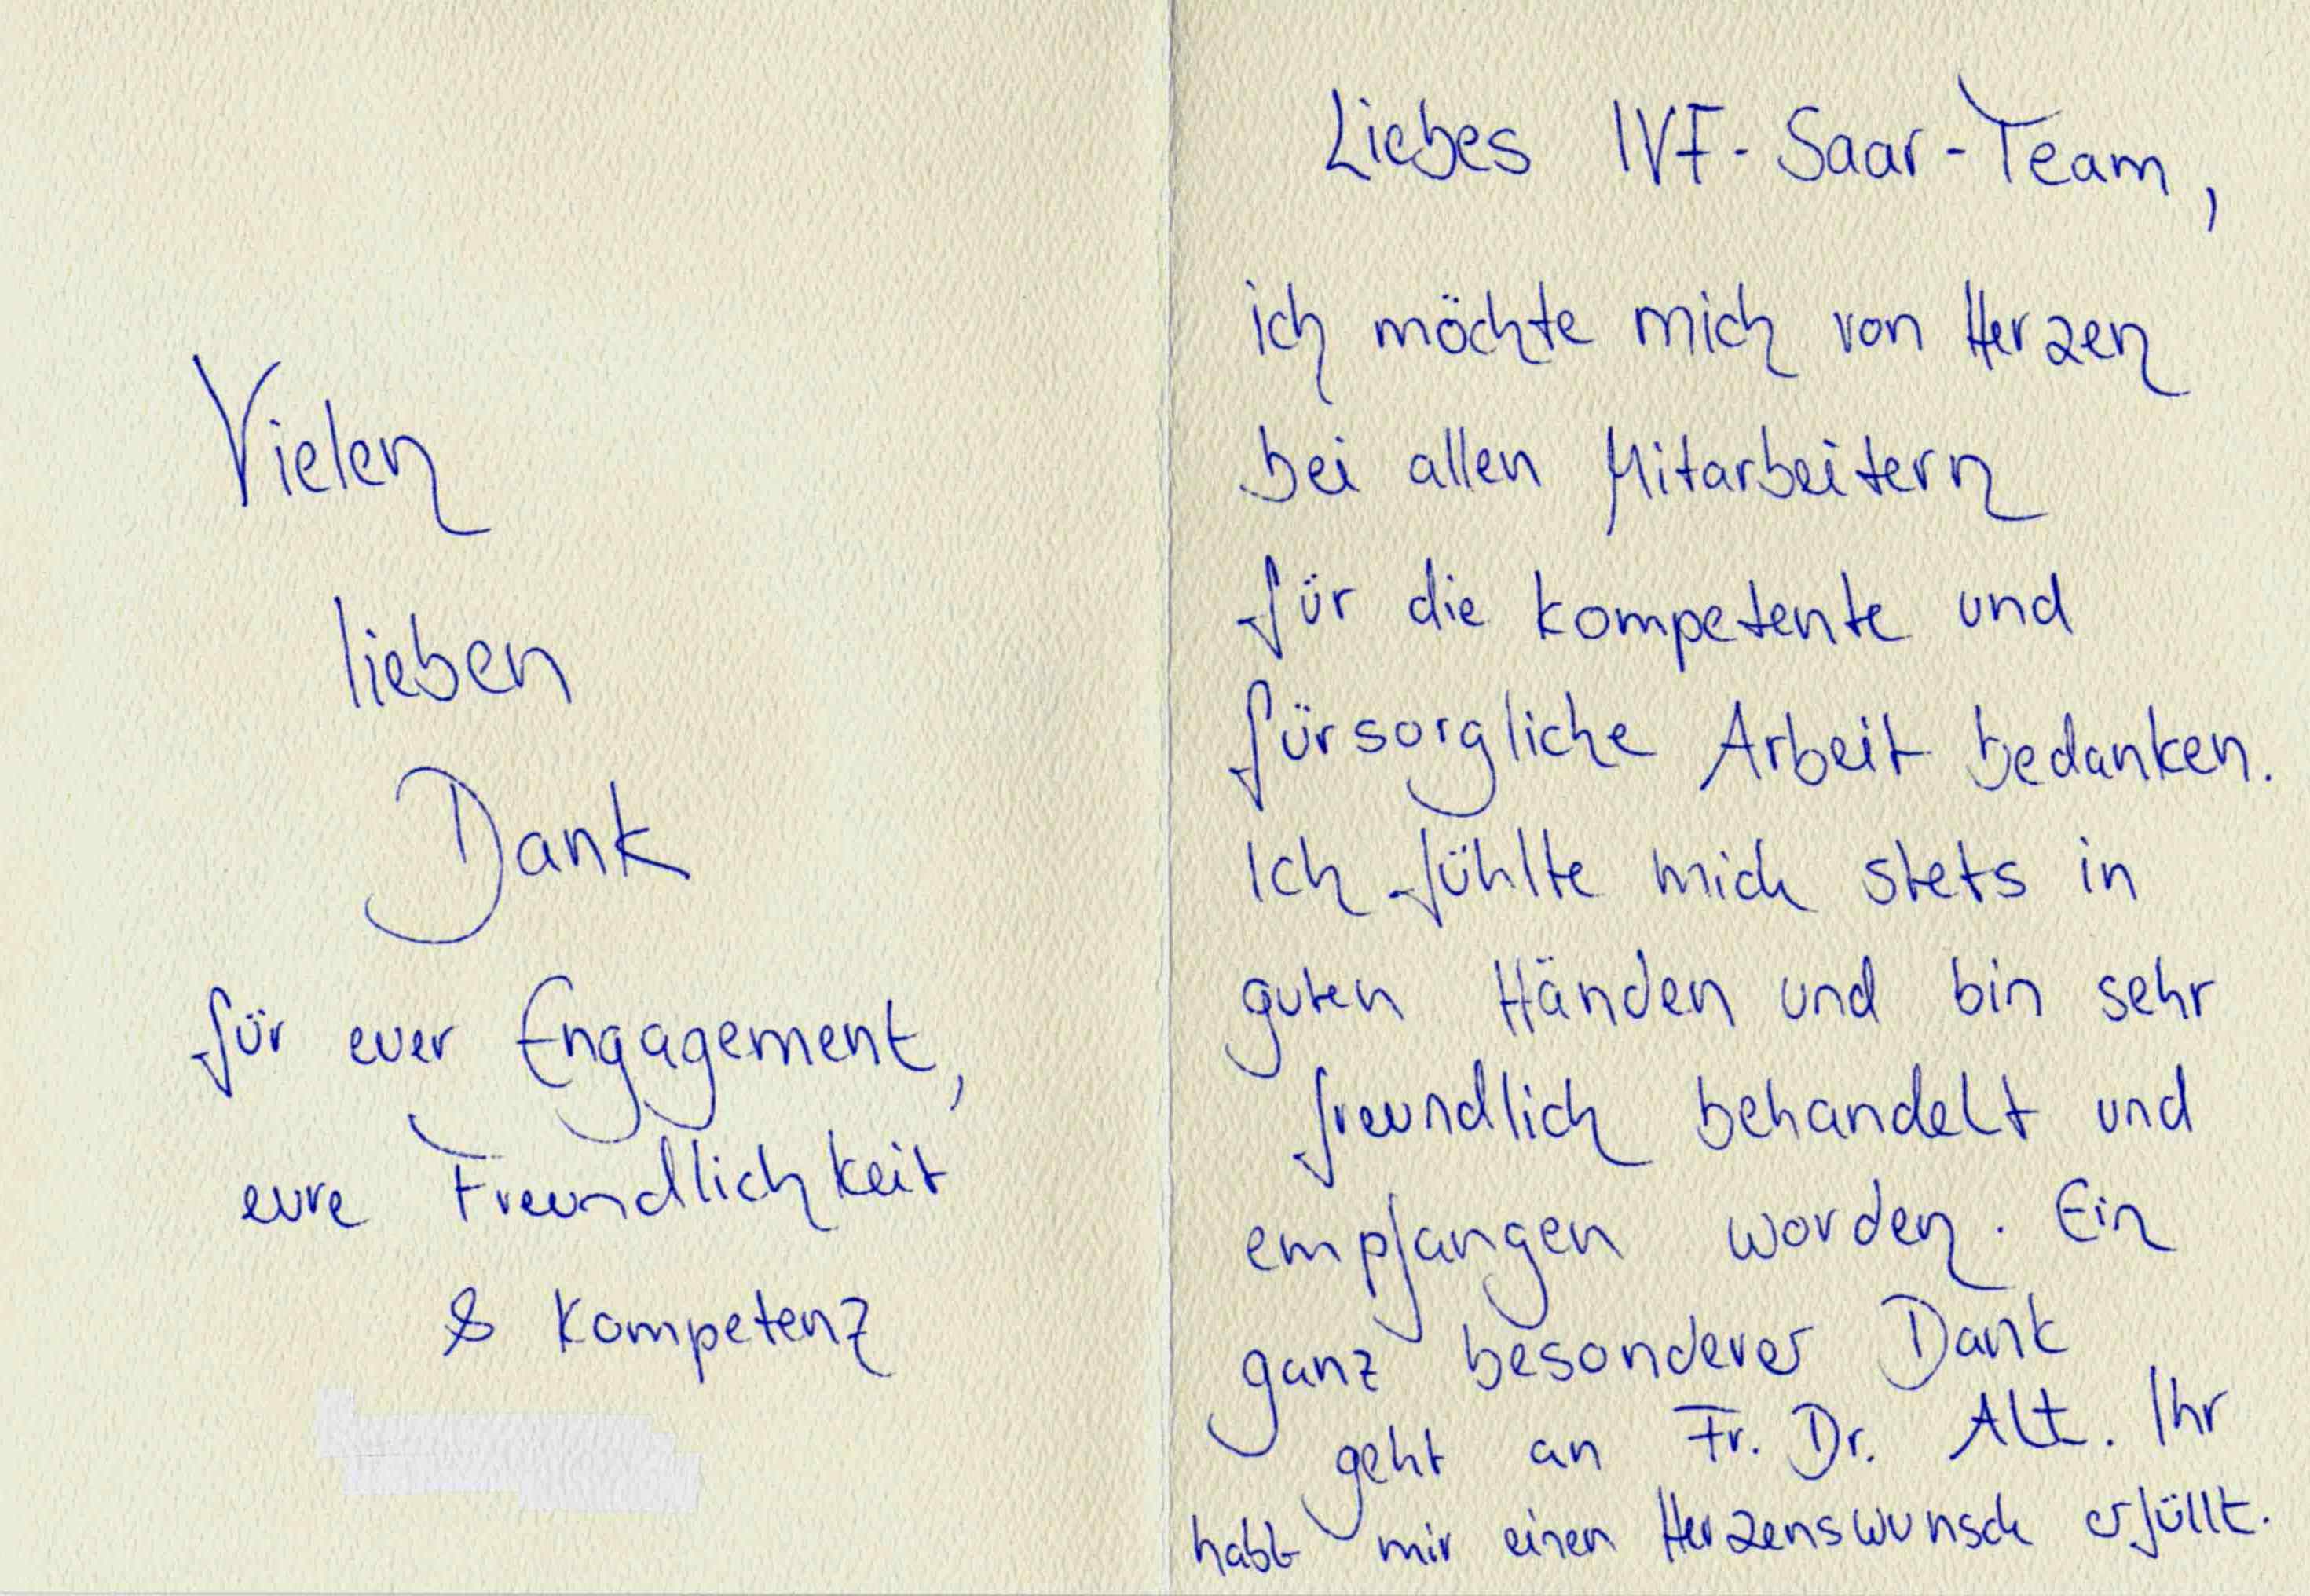 Vielen
lieben
Dank
für euer Engagement,
eure Freundlichkeit
& Kompetenz
Liebes IVF-Saar-Team,
ich möchte mich von Herzen
bei allen Mitarbeitern
für die kompetente und
fürsorgliche Arbeit bedanken.
Ich fühlte mich stets in
guten Händen und bin sehr
freundlich behandelt und
empfangen worden. Ein
ganz besonderer Dank
geht an Fr. Dr. Alt. Ihr
habt mir einen Herzenswunsch erfüllt.